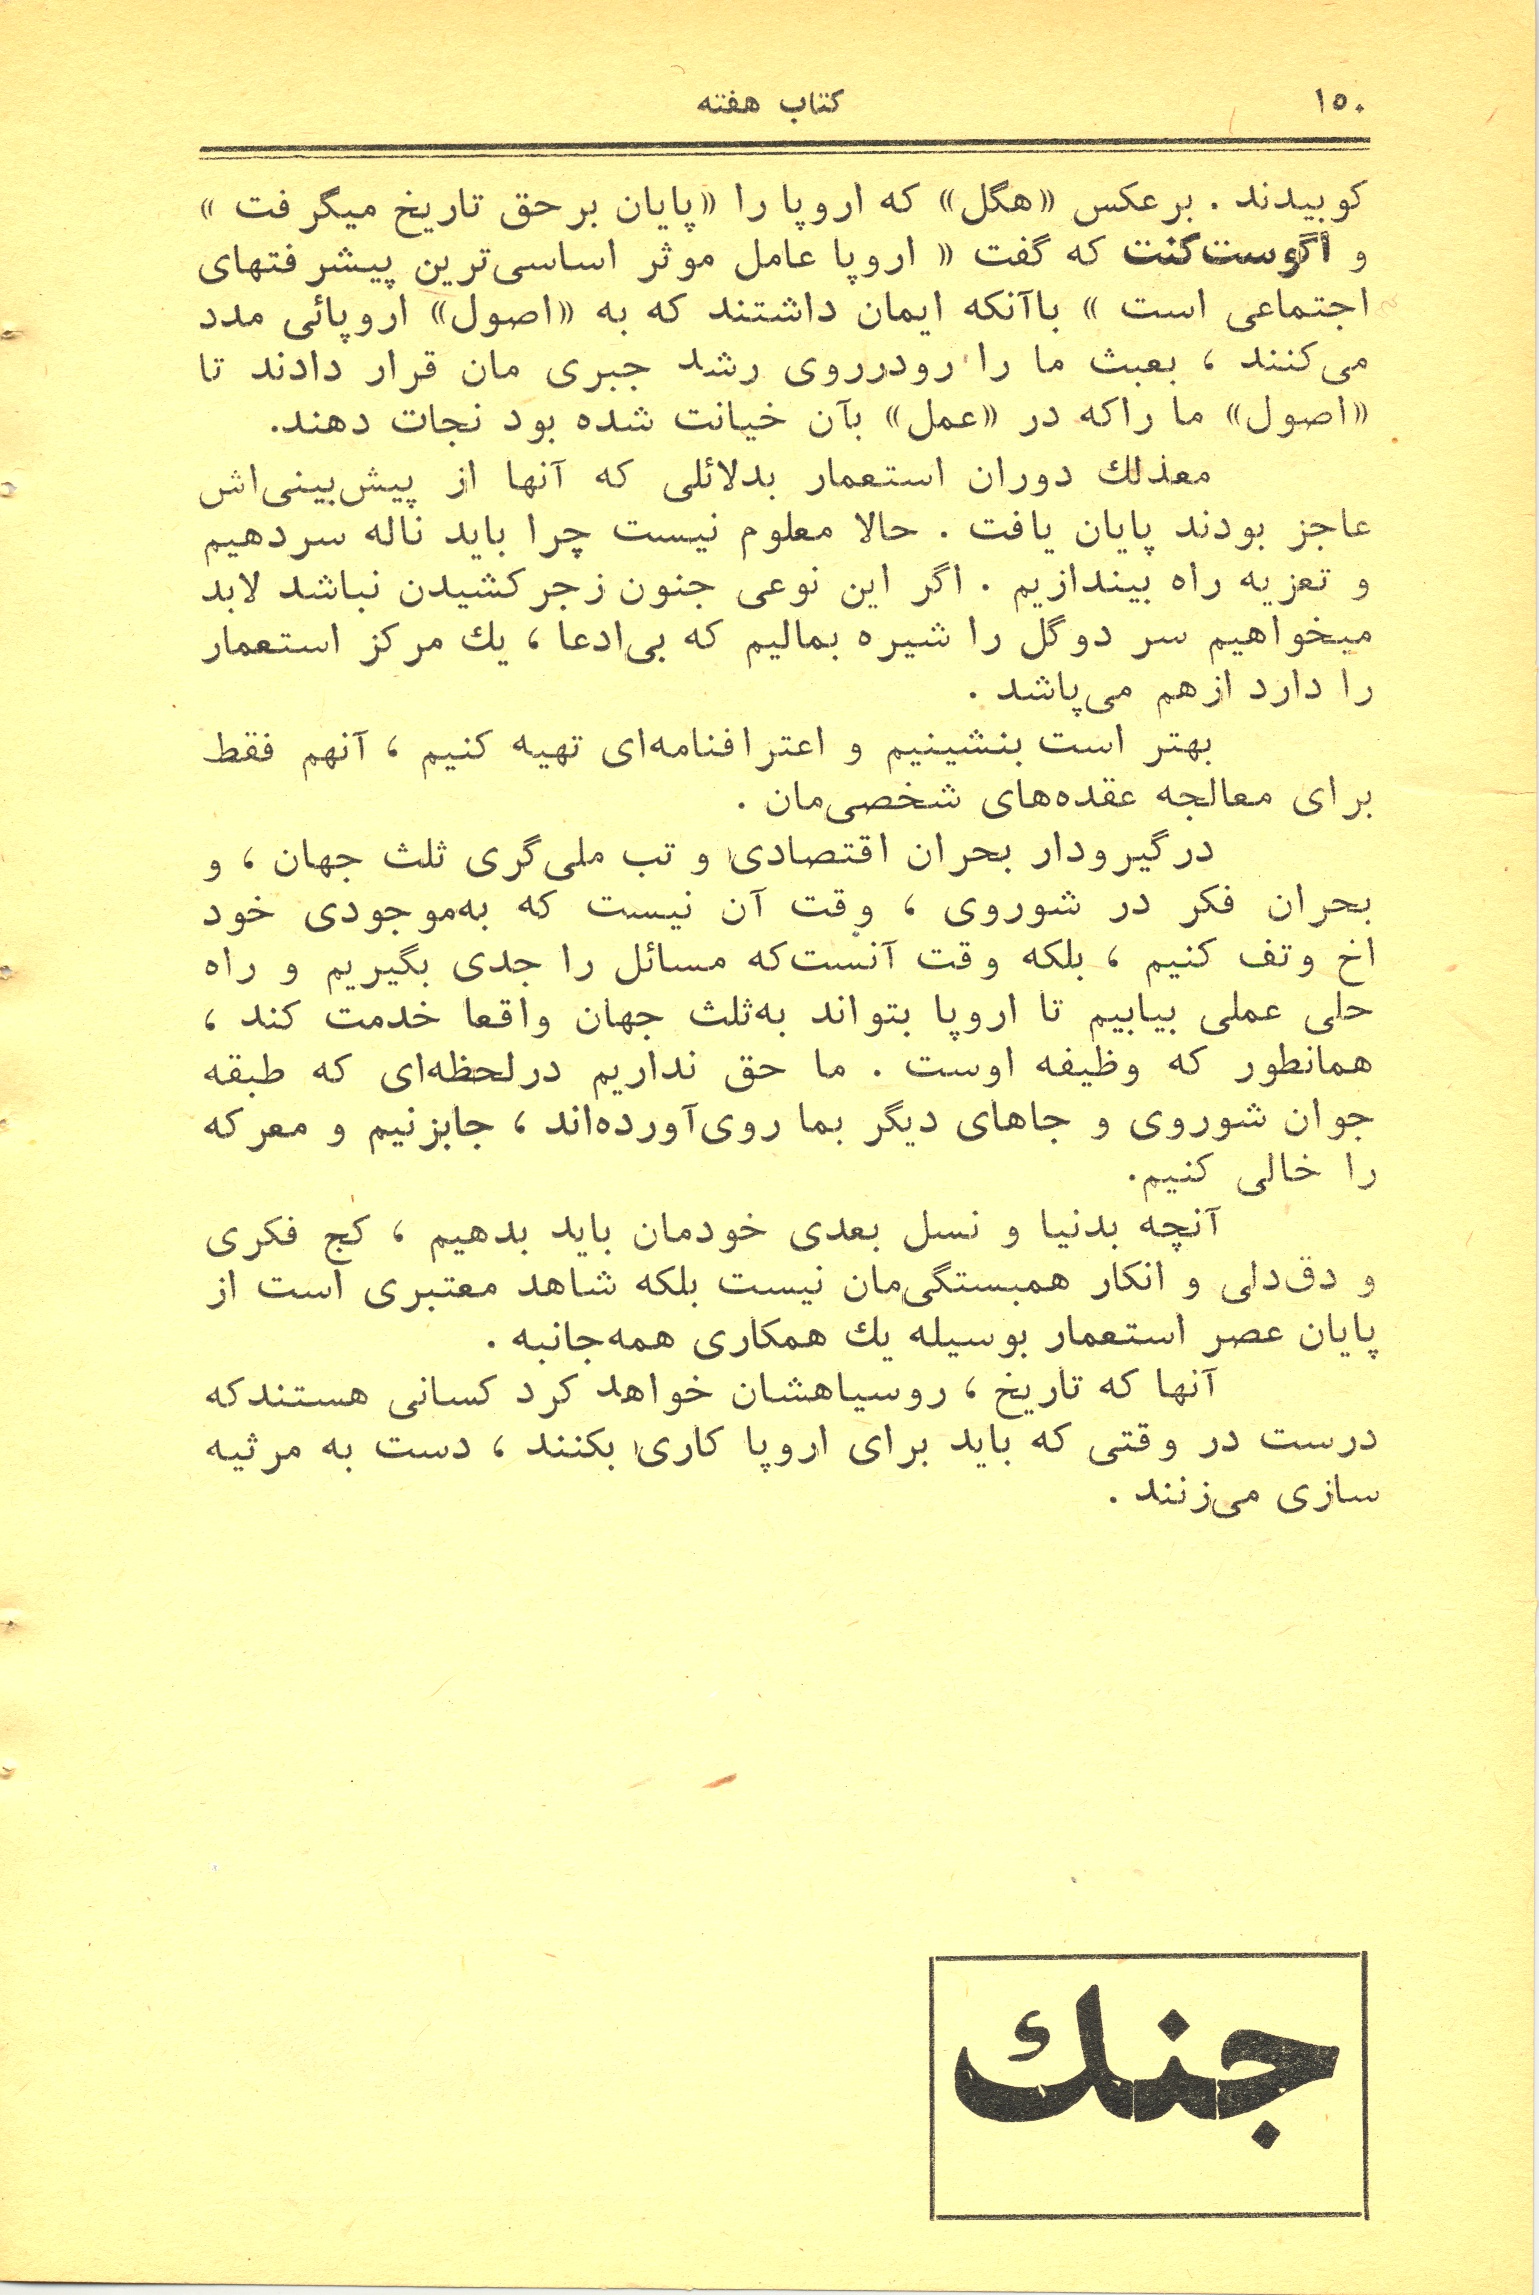 ۱۵۰
کتاب هفته
کوبیدند . برعکس «هگل» که اروپا را «پایان برحق تاریخ میگرفت »
و اگوست‌کنت که گفت « اروپا عامل موثر اساسی‌ترین پیشرفتهای
اجتماعی است » باآنکه ایمان داشتند که به «اصول» اروپائی مدد
می‌کنند ، بعبث ما را رودرروی رشد جبری مان قرار دادند تا
«اصول» ما راکه در «عمل» بآن خیانت شده بود نجات دهند.
معذلك دوران استعمار بدلائلی که آنها از پیش‌بینی‌اش
عاجز بودند پایان یافت . حالا معلوم نیست چرا باید ناله سردهیم
و تعزیه راه بیندازیم . اگر این نوعی جنون زجرکشیدن نباشد لابد
میخواهیم سر دوگل را شیره بمالیم که بی‌ادعا ، یك مرکز استعمار
را دارد ازهم می‌پاشد .
بهتر است بنشینیم و اعترافنامه‌ای تهیه کنیم ، آنهم فقط
برای معالجه عقده‌های شخصی‌مان .
درگیرودار بحران اقتصادی و تب ملی‌گری ثلث جهان ، و
بحران فکر در شوروی ، وقت آن نیست که به‌موجودی خود
اخ وتف کنیم ، بلکه وقت آنست‌که مسائل را جدی بگیریم و راه
حلی عملی بیابیم تا اروپا بتواند به‌ثلث جهان واقعا خدمت کند ،
همانطور که وظیفه اوست . ما حق نداریم درلحظه‌ای که طبقه
جوان شوروی و جاهای دیگر بما روی‌آورده‌اند ، جابزنیم و معرکه
را خالی کنیم.
آنچه بدنیا و نسل بعدی خودمان باید بدهیم ، کج فکری
و دق‌دلی و انکار همبستگی‌مان نیست بلکه شاهد معتبری است از
پایان عصر استعمار بوسیله یك همکاری همه‌جانبه .
آنها که تاریخ ، روسیاهشان خواهد کرد کسانی هستندکه
درست در وقتی که باید برای اروپا کاری بکنند ، دست به مرثیه
سازی می‌زنند .
جنك